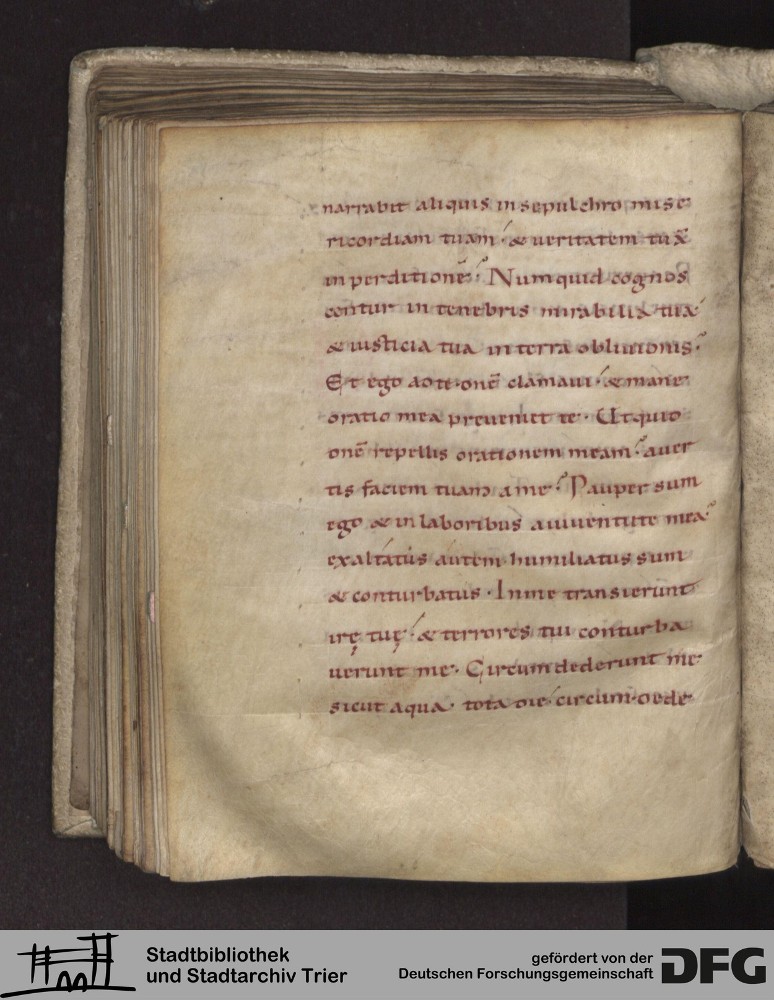 narrabit aliquis in sepulchro mise
ricordiam tuam & ueritatem tuā
in perditionē. Numquid cognos
centur in tenebris mirabilia tua
& iusticia tua in terra obliuionis.
Et ego ad te dnē clamaui & mane
oratio mea preueniet te. Ut quid
dnē repellis orationem meam auer
tis faciem tuam a me. Pauper sum
ego & in laboribus a iuuentute mea
exaltatus autem humiliatus sum
& conturbatus. In me transierunt
irę tuę & terrores tui conturba
uerunt me. Circumdederunt me
sicut aqua. tota die circumdede
Stadtbibliothek
und Stadtarchiv Trier
gefördert von der
Deutschen Forschungsgemeinschaft
DFG